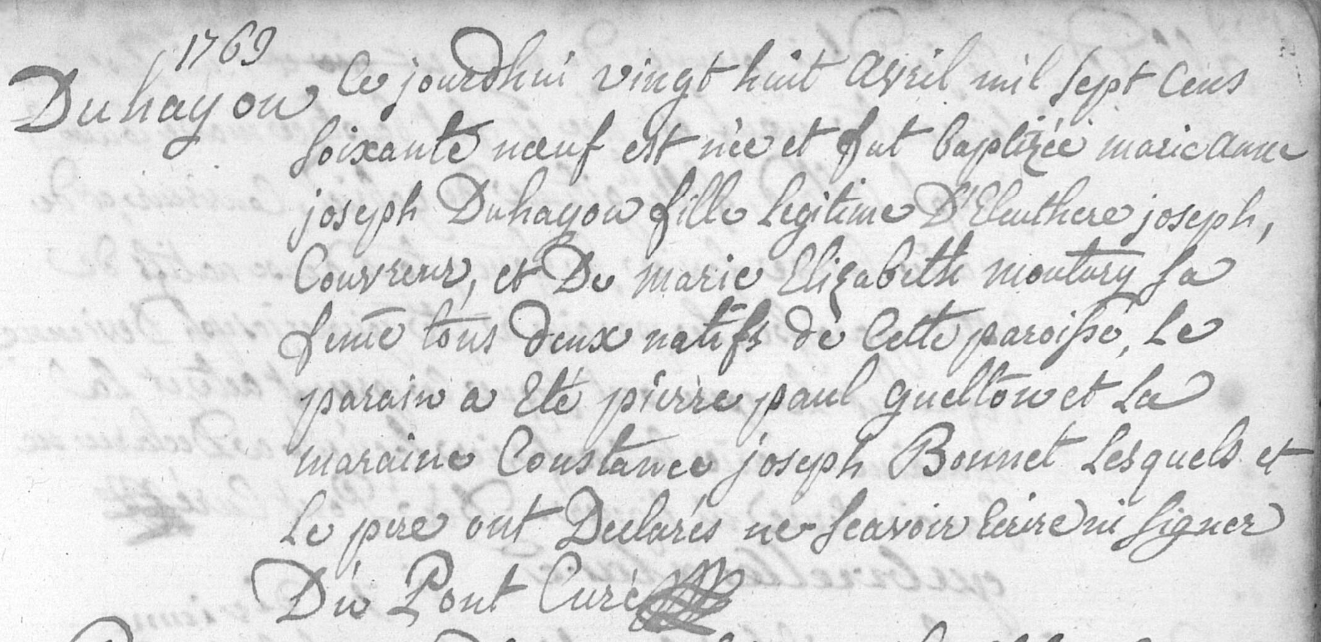 1769
Duhayou Ce jourdhui vingt huit avril mil sept cens
soixante nœuf est née et fut baptizée marie anne
joseph Duhayou fille legitime D'Eleuthere joseph,
Couvreur, et De marie Elizabeth moutury sa
feme tous deux natifs de cette paroisse, le
parain a Eté pierre paul guelton et la
maraine Constance joseph Bonnet lesquels et
le pere ont Declarés ne scavoir Ecrire ni signer
Du Pont Curé